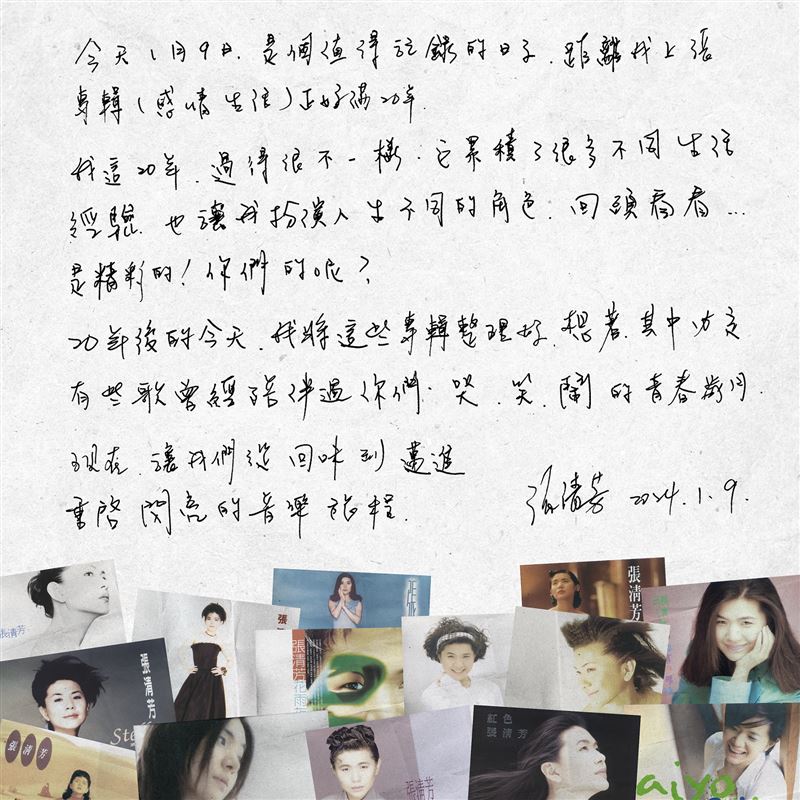 今天1月9日．是個值得記錄的日子．距離我上張
專輯(感情生活)正好滿20年．
我這20年．過得很不一樣．它累積了很多不同生活
經驗．也讓我扮演人生不同的角色．回頭看看…
是精彩的！你們的呢？
20年後的今天．我將這些專輯整理好．想著．其中應該
有些歌曾經陪伴過你們．哭．笑．鬧的青春歲月．
現在．讓我們從回味到邁進
重啓閃亮的音樂旅程．
張清芳 2024.1.9.
張清芳
張清芳
張清芳
張清芳
張清芳
Ste
花雨
張清芳
紅色
張清芳
張清芳
aiyo